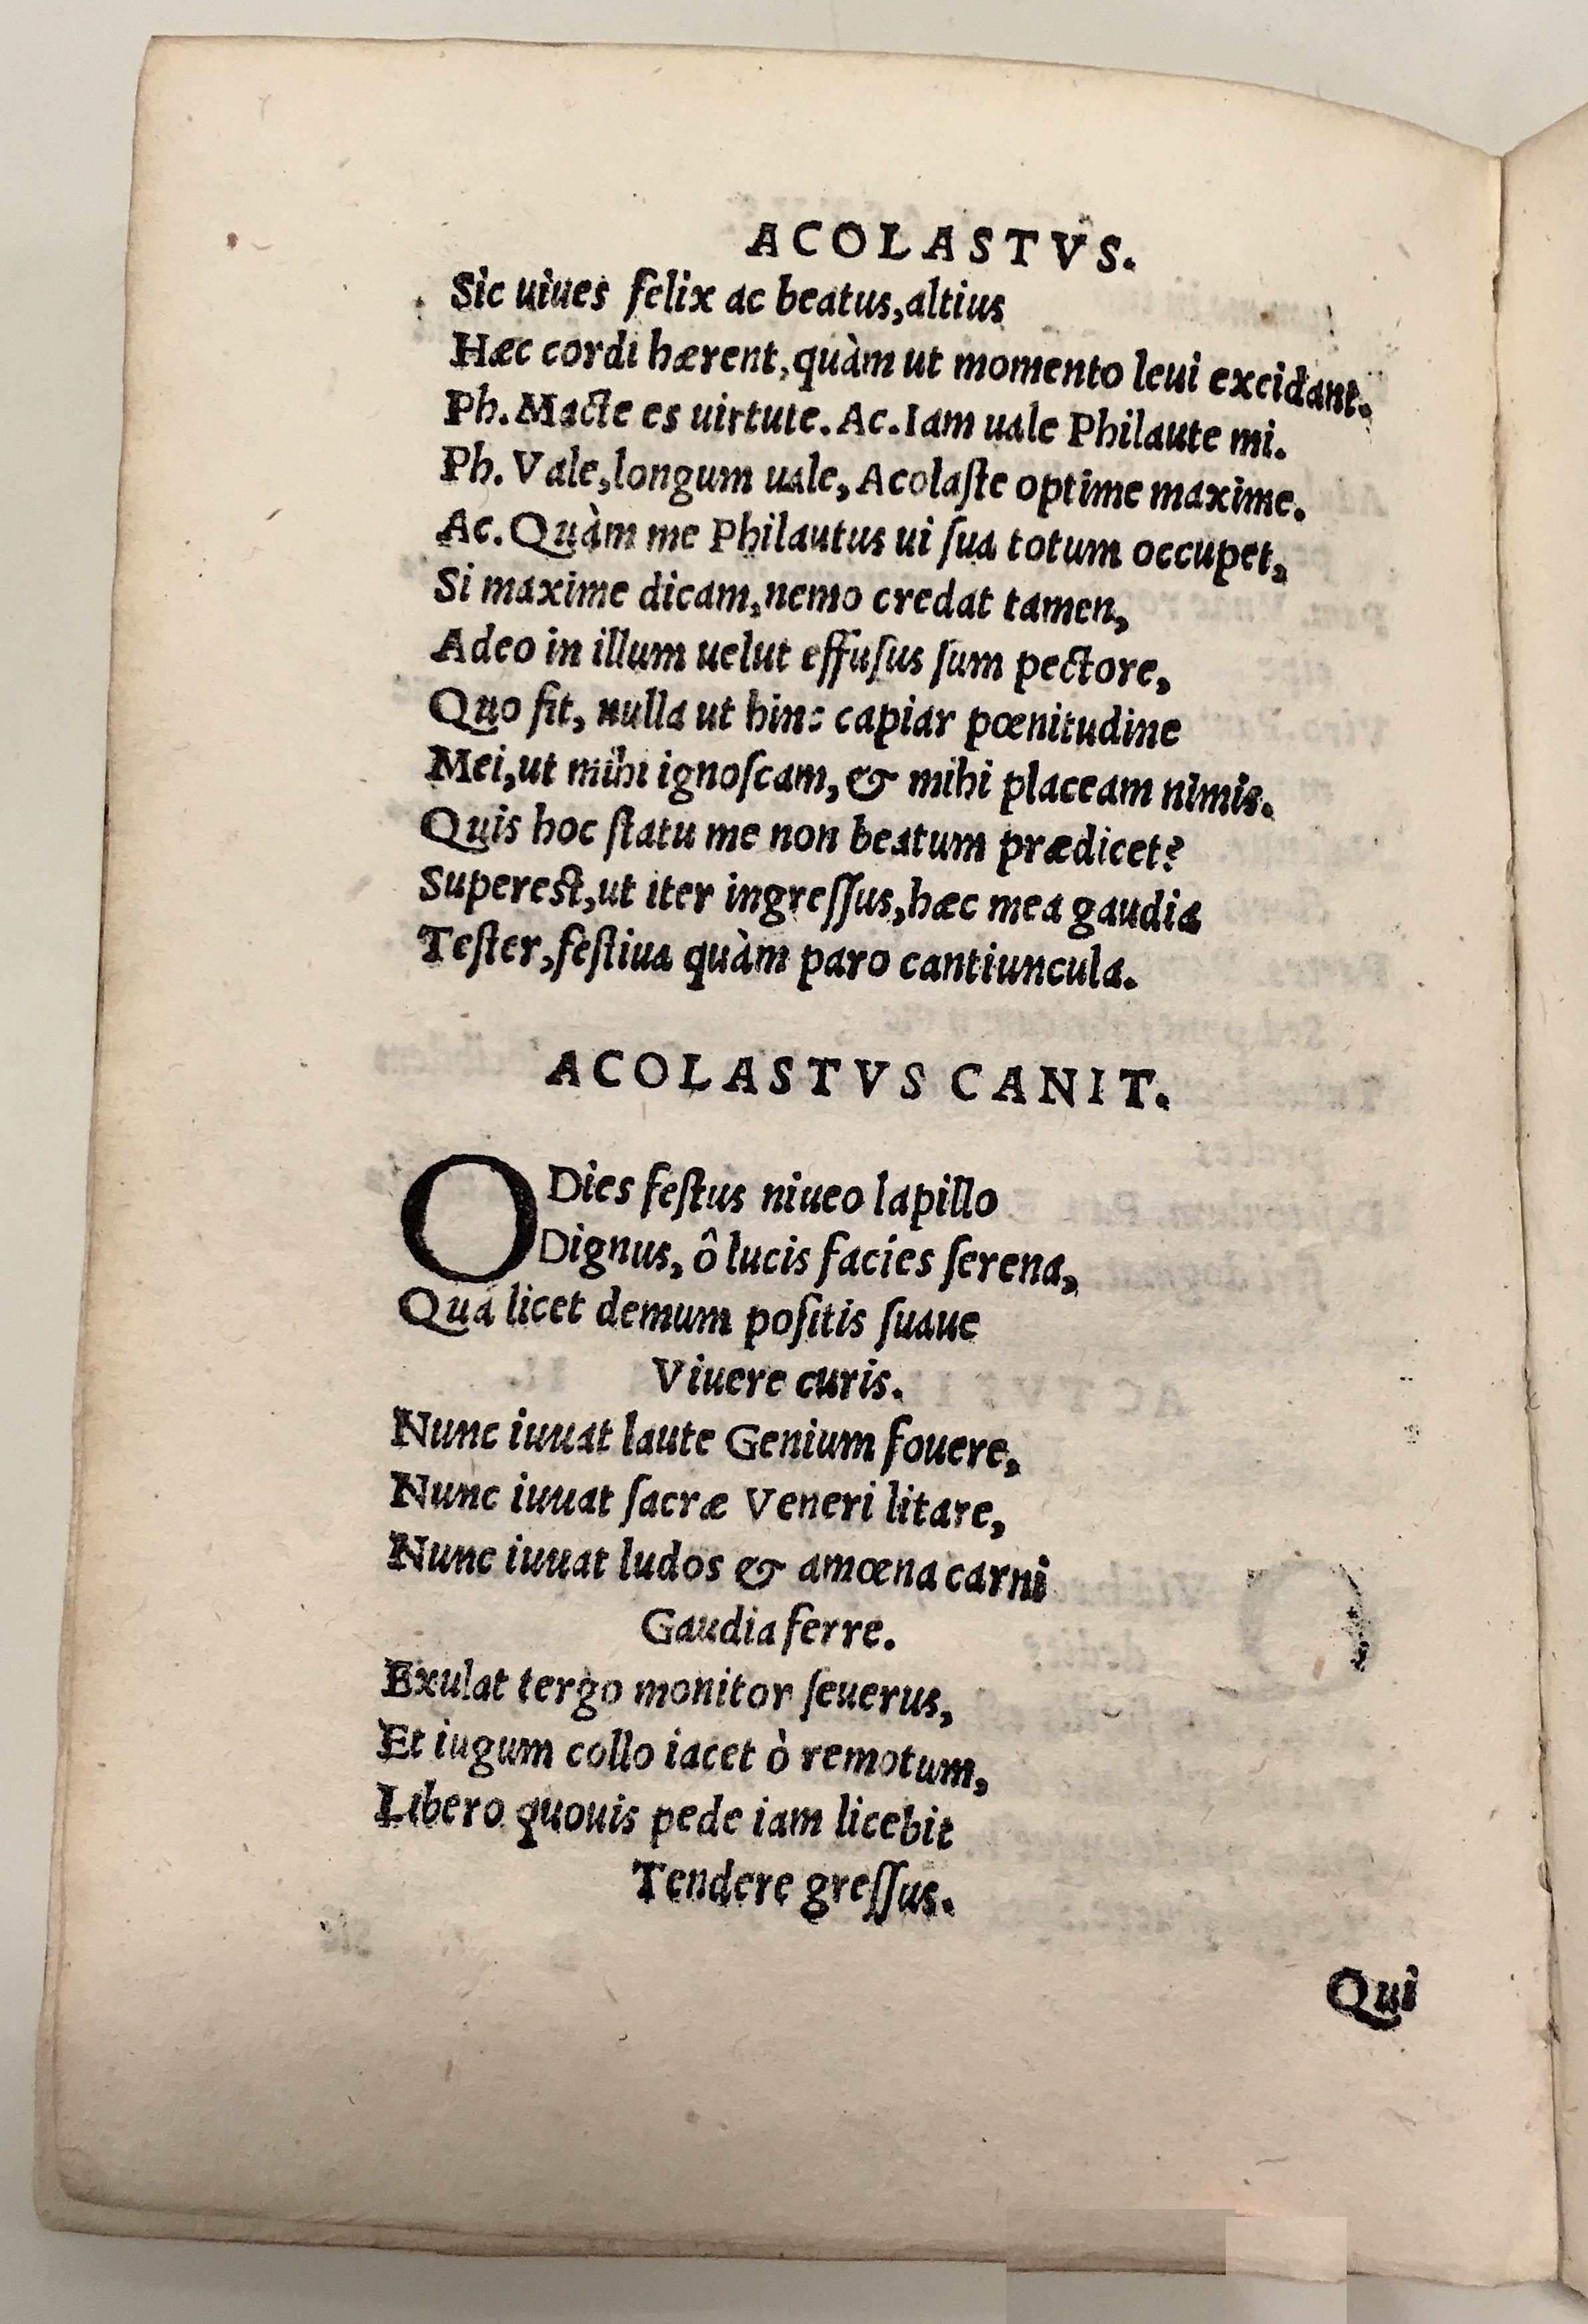 ACOLASTVS.
Sic uiues felix ac beatus,altius
Hæc cordi hærent,quàm ut momento leui excidant.
Ph.Macte es uirtute. Ac.Iam uale Philaute mi.
Ph. Vale,longum uale, Acolaſte optime maxime.
Ac. Quàm me Philautus ui ſua totum occupet,
Si maxime dicam,nemo credat tamen,
Adeo in illum uelut effuſus ſum pectore,
Quo fit, nulla ut hinc capiar pœnitudine
Mei,ut mihi ignoſcam, & mihi placeam nimis.
Quis hoc ſtatu me non beatum prædicet?
Supereſt,ut iter ingreſſus,hæc mea gaudia
Teſter,feſtiua quàm paro cantiuncula.
ACOLASTVS CANIT.
O Dies feſtus niueo lapillo
Dignus, ô lucis facies ſerena,
Qua licet demum poſitis ſuaue
Viuere curis.
Nunc iuuat laute Genium fouere,
Nunc iuuat ſacræ Veneri litare,
Nunc iuuat ludos & amœna carni
Gaudia ferre.
Exulat tergo monitor ſeuerus,
Et iugum collo iacet ò remotum,
Libero quouis pede iam licebit
Tendere greſſus.
Qui